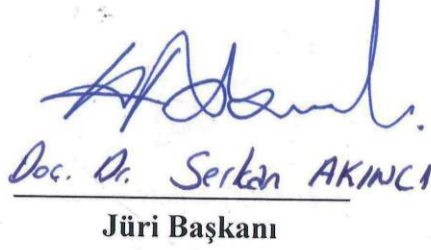 Doç. Dr. Serkan AKINCI
Jüri Başkanı